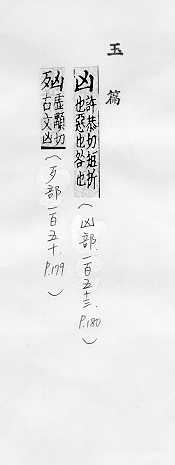 玉篇
凶
許恭切短折
也惡也咎也
(凶部 一百五十三. P.180)
虛顒切
古文凶
(歹部 一百五十. P.179)